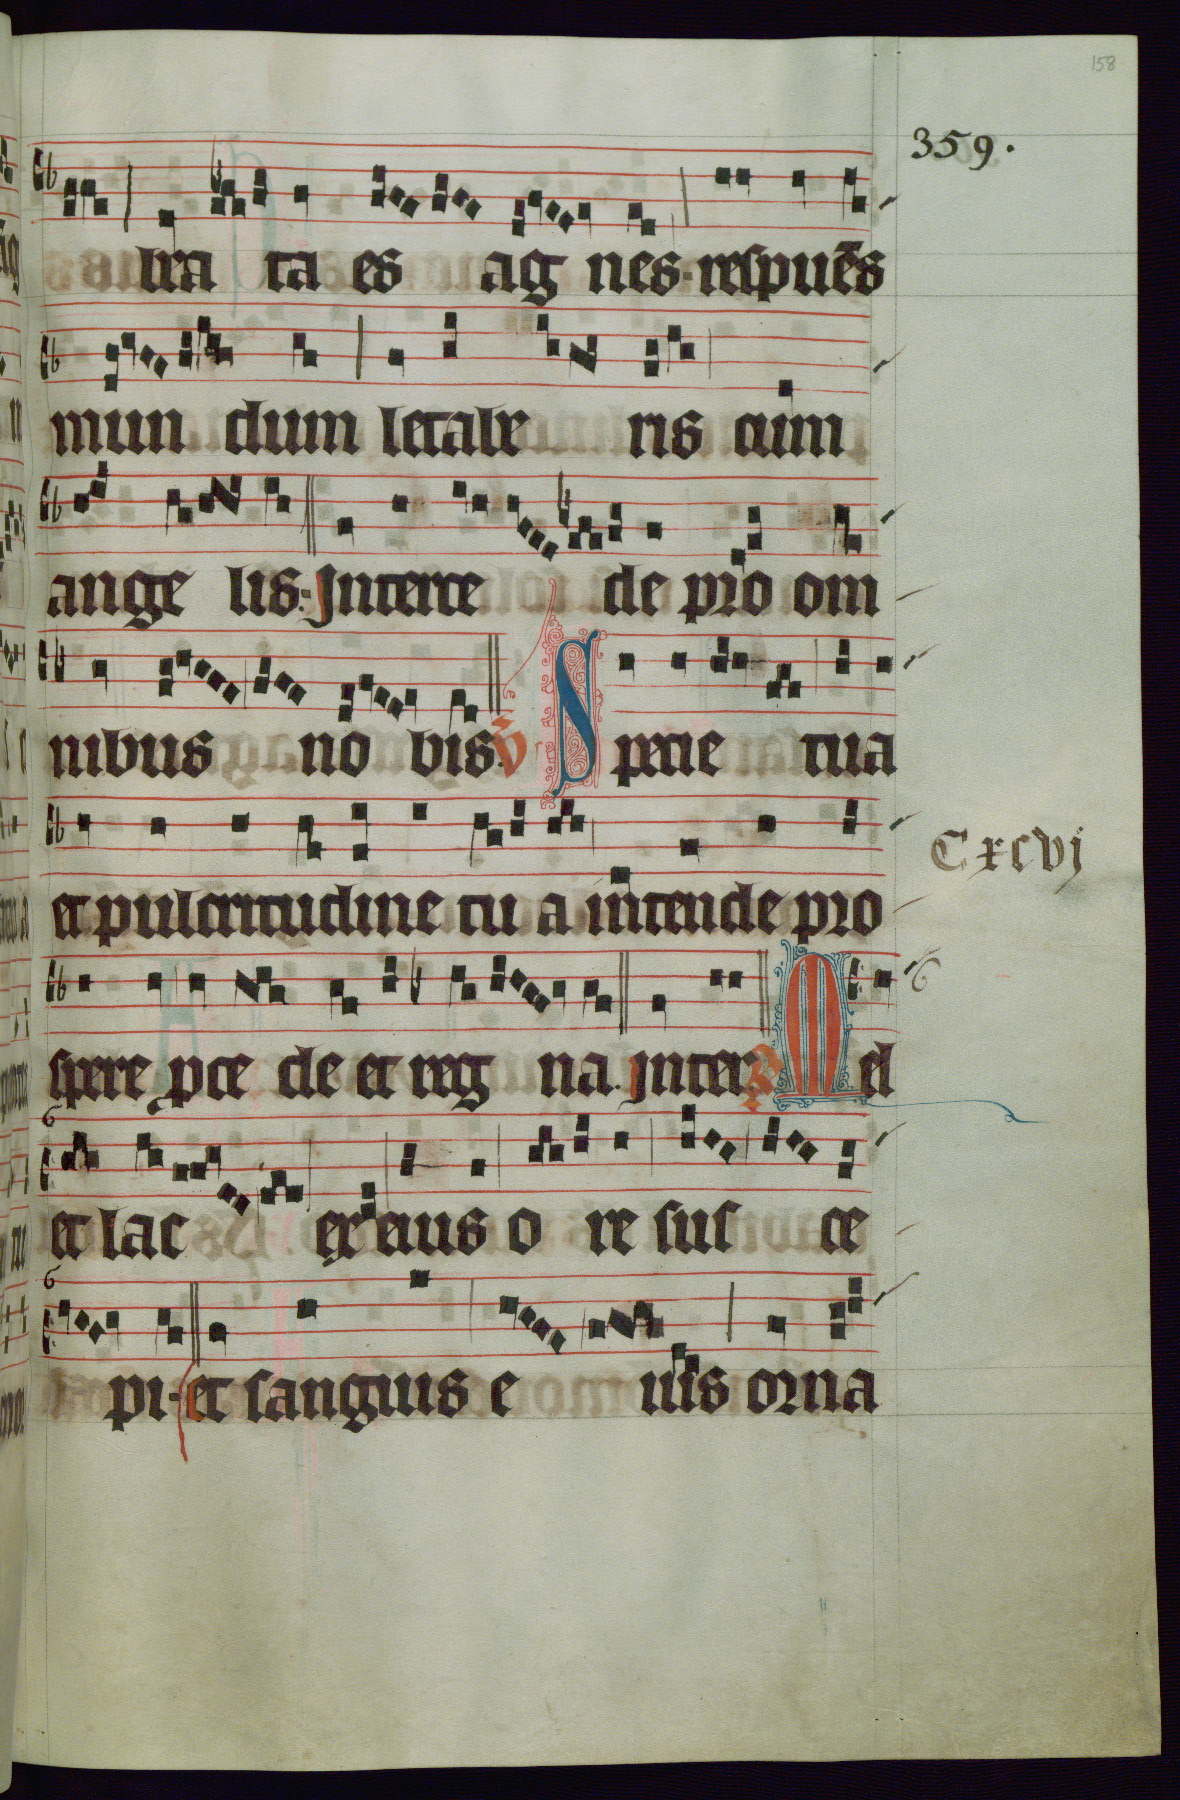 158
359.
bra ta es ag nes. respuēs
mun dum letabe ris cum
ange lis: Interce de pro om
nibus no bis. v̄ Specie tua
et pulcritudine tu a intende pro
Cxcvj
spere pce de et reg na. Inter. R Mel
et lac ex eius o re sus ce
pi. et sanguis e ius orna